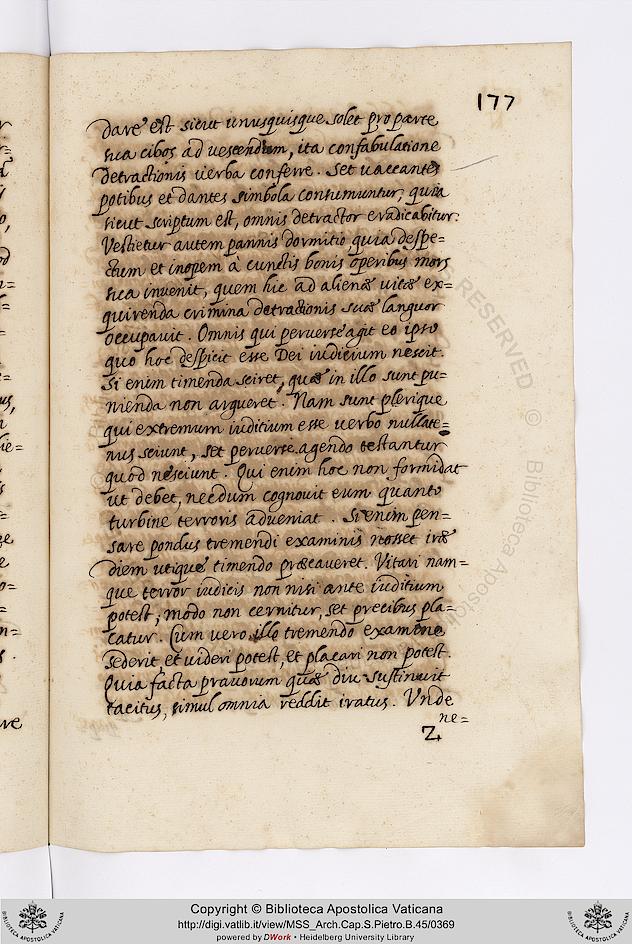 177
dare est sicut unusquisque solet pro parte
sua cibos ad vescendum, ita confabulatione
detractionis verba conferre. Set vaccantes
potibus et dantes simbola consumuntur, quia
sicut scriptum est, omnis detractor eradicabitur:
Vestietur autem pannis dormitio, quia despe=
ctum et inopem à cunctis bonis operibus mors
sua invenit, quem hic ad alienæ vitæ ex=
quirenda crimina detractionis suæ languor
occupauit. Omnis qui perversè agit eo ipso
quo hoc despicit esse Dei iudicium nescit.
Si enim timenda sciret, quæ in illo sunt pu=
nienda non argueret. Nam sunt plerique
qui extremum iuditium esse verbo nullate=
nus sciunt, set perverse agendo testantur
quod nesciunt. Qui enim hoc non formidat
ut debet, necdum cognovit eum quanto
turbine terroris adveniat. Si enim pen=
sare pondus tremendi examinis nosset iræ
diem utique timendo præcaveret. Vitari nam=
que terror iudicis non nisi ante iuditium
potest, modo non cernitur, set precibus pla=
catur. Cum vero illo tremendo examine
sederit, et videri potest, et placari non potest.
Quia facta prauorum quæ diu sustinuit
tacitus, simul omnia reddit iratus. Vnde
ne=
Z
Copyright © Biblioteca Apostolica Vaticana
http://digi.vatlib.it/view/MSS_Arch.Cap.S.Pietro.B.45/0369
powered by DWork • Heidelberg University Library